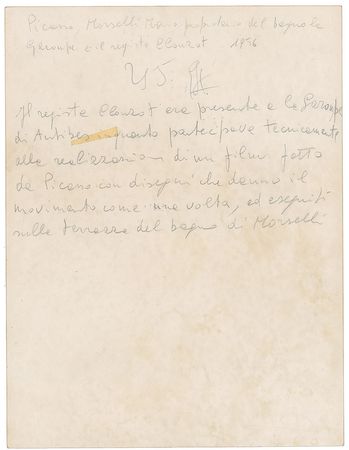 Picasso Morselli Mario proprietario del bagno la
Garoupe e il regista Clouzot 1956
Il regista Clouzot era presente a la Garoupe
di Antibes inquanto partecipava tecnicamente
alla realizzazione di un film fatto
da Picasso con disegni che danno il
movimento come una volta, ed eseguiti
sulla terrazza del bagno di Morselli